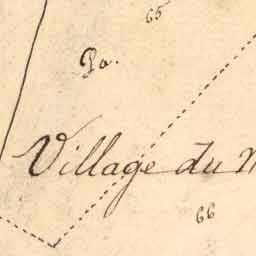 65
Pa.
Village du
66